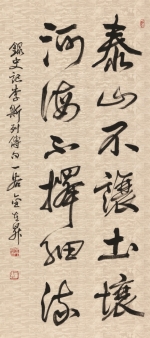 泰山不讓土壤
河海不擇細流
錄史記李斯列傳句一